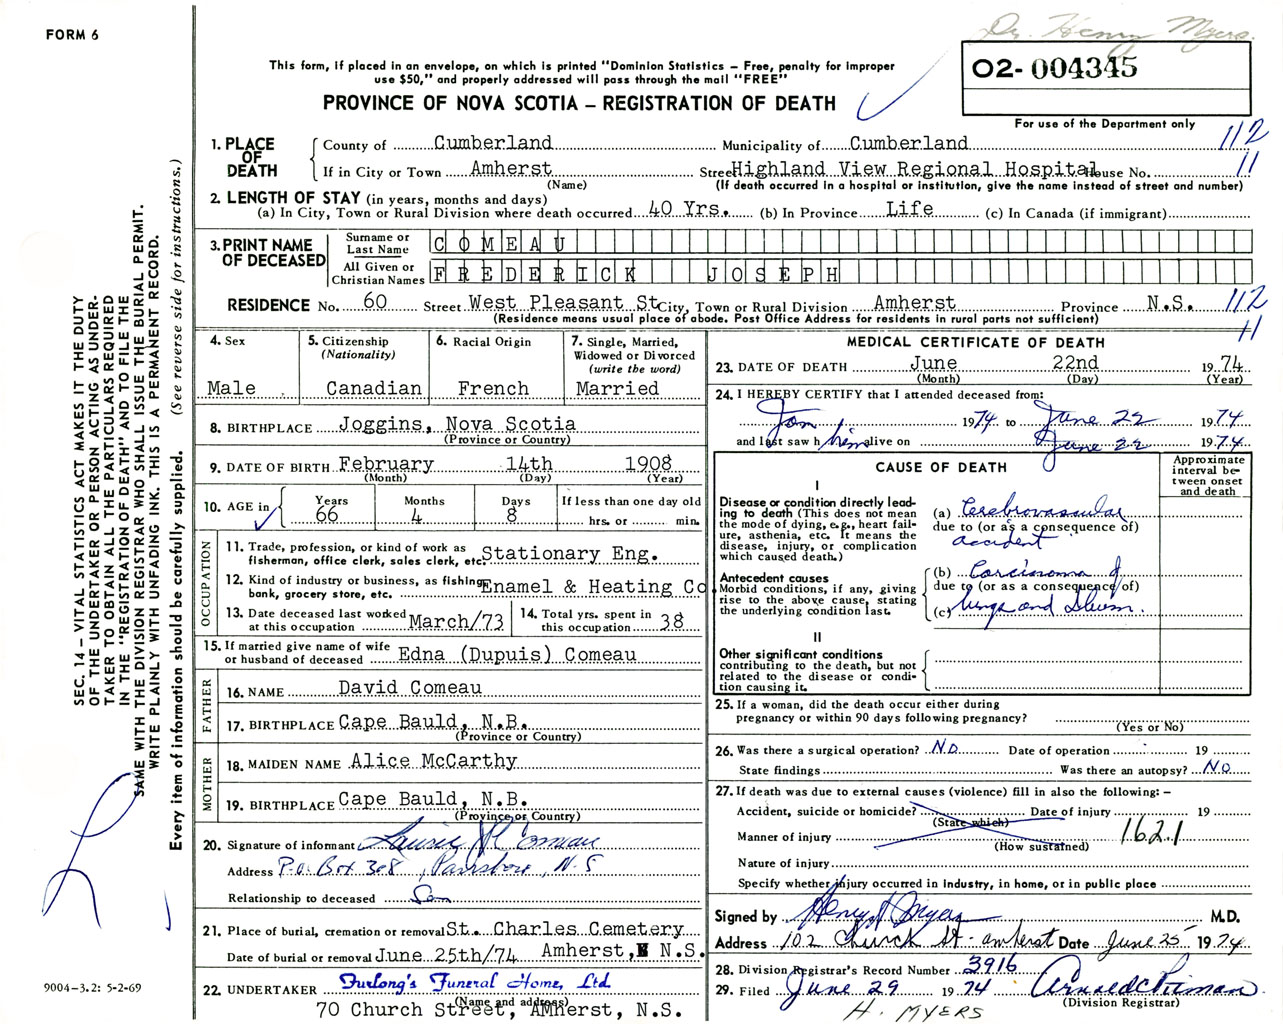 FORM 6
Dr. Henry Myers.
This form, if placed in an envelope, on which is printed "Dominion Statistics – Free, penalty for improper
use $50," and properly addressed will pass through the mail "FREE"
PROVINCE OF NOVA SCOTIA – REGISTRATION OF DEATH
02-004345
For use of the Department only
1. PLACE OF DEATH
County of Cumberland Municipality of Cumberland 112
If in City or Town Amherst Street Highland View Regional Hospital House No. 11
(Name) (If death occurred in a hospital or institution, give the name instead of street and number)
2. LENGTH OF STAY (in years, months and days)
(a) In City, Town or Rural Division where death occurred 40 Yrs. (b) In Province Life (c) In Canada (if immigrant)
3. PRINT NAME OF DECEASED
Surname or Last Name COMEAU
All Given or Christian Names FREDERICK JOSEPH
RESIDENCE No. 60 Street West Pleasant St City, Town or Rural Division Amherst Province N.S. 112
(Residence means usual place of abode. Post Office Address for residents in rural parts not sufficient) 11
4. Sex
Male
5. Citizenship
(Nationality)
Canadian
6. Racial Origin
French
7. Single, Married,
Widowed or Divorced
(write the word)
Married
8. BIRTHPLACE Joggins, Nova Scotia
(Province or Country)
9. DATE OF BIRTH February 14th 1908
(Month) (Day) (Year)
10. AGE in
Years Months Days If less than one day old
66 4 8 hrs. or min.
OCCUPATION
11. Trade, profession, or kind of work as
fisherman, office clerk, sales clerk, etc. Stationary Eng.
12. Kind of industry or business, as fishing,
bank, grocery store, etc. Enamel & Heating Co
13. Date deceased last worked
at this occupation March/73
14. Total yrs. spent in
this occupation 38
15. If married give name of wife
or husband of deceased Edna (Dupuis) Comeau
FATHER
16. NAME David Comeau
17. BIRTHPLACE Cape Bauld, N.B.
(Province or Country)
MOTHER
18. MAIDEN NAME Alice McCarthy
19. BIRTHPLACE Cape Bauld, N.B.
(Province or Country)
20. Signature of informant Comeau
Address P.O. Box 308, Parrsboro, N.S
Relationship to deceased Son
21. Place of burial, cremation or removal St. Charles Cemetery
Date of burial or removal June 25th/74 Amherst, N.S.
22. UNDERTAKER Furlong's Funeral Home, Ltd
(Name and address)
70 Church Street, Amherst, N.S.
MEDICAL CERTIFICATE OF DEATH
23. DATE OF DEATH June 22nd 1974
(Month) (Day) (Year)
24. I HEREBY CERTIFY that I attended deceased from:
Jan 1974 to June 22 1974
and last saw h him alive on June 22 1974
CAUSE OF DEATH
Approximate
interval be-
tween onset
and death
I
Disease or condition directly lead-
ing to death (This does not mean
the mode of dying, e.g., heart fail-
ure, asthenia, etc. It means the
disease, injury, or complication
which caused death.)
(a) Cerebrovascular
due to (or as a consequence of)
accident
Antecedent causes
Morbid conditions, if any, giving
rise to the above cause, stating
the underlying condition last.
(b) Carcinoma of
due to (or as a consequence of)
(c) lungs and
II
Other significant conditions
contributing to the death, but not
related to the disease or condi-
tion causing it.
25. If a woman, did the death occur either during
pregnancy or within 90 days following pregnancy?
(Yes or No)
26. Was there a surgical operation? No Date of operation 19
State findings Was there an autopsy? No
27. If death was due to external causes (violence) fill in also the following: –
Accident, suicide or homicide? Date of injury 19
(State which)
Manner of injury 162.1
(How sustained)
Nature of injury
Specify whether injury occurred in industry, in home, or in public place
Signed by Henry Myers M.D.
Address 102 Church St. Amherst Date June 25 1974
28. Division Registrar's Record Number 3916
29. Filed June 29 1974
(Division Registrar)
H. MYERS
SEC. 14 – VITAL STATISTICS ACT MAKES IT THE DUTY
OF THE UNDERTAKER OR PERSON ACTING AS UNDER-
TAKER TO OBTAIN ALL THE PARTICULARS REQUIRED
IN THE "REGISTRATION OF DEATH" AND TO FILE THE
SAME WITH THE DIVISION REGISTRAR WHO SHALL ISSUE THE BURIAL PERMIT.
WRITE PLAINLY WITH UNFADING INK. THIS IS A PERMANENT RECORD.
Every item of information should be carefully supplied. (See reverse side for instructions.)
9004-3.2: 5-2-69